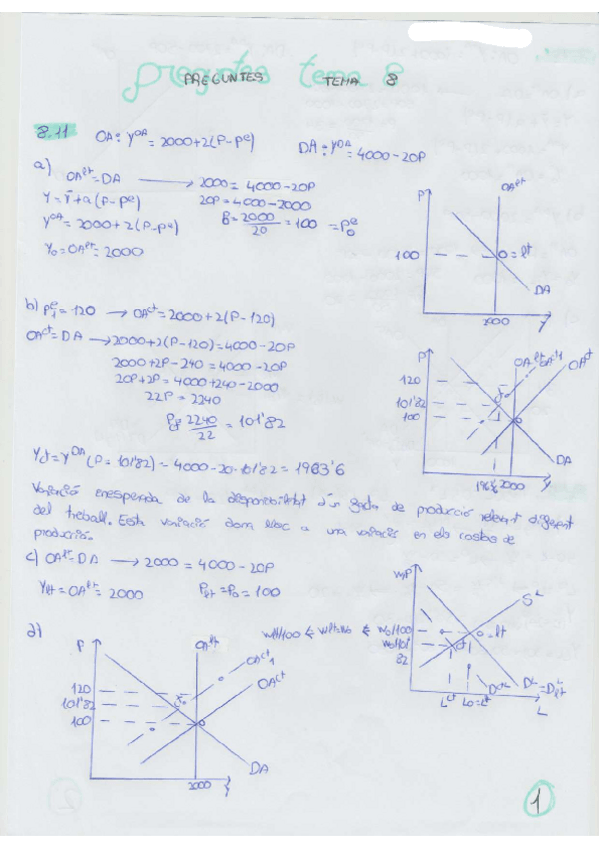 preguntes tema 8
PREGUNTES TEMA 8
8.11 OA: Y^OA = 2000+2(P-P^e) DA: Y^DA = 4000-20P
a) OA^lt = DA → 2000 = 4000-20P
Y = Ȳ+a(P-P^e) 20P = 4000-2000
Y^OA = 2000+2(P-P^e) P₀ = 2000/20 = 100 = P₀^e
Y₀ = OA^lt = 2000
P OA^lt
100 0=lt
DA
2000 Y
b) P₁^e = 120 → OA^ct = 2000+2(P-120)
OA^ct = DA → 2000+2(P-120) = 4000-20P
2000+2P-240 = 4000-20P
20P+2P = 4000+240-2000
22P = 2240
P_ct = 2240/22 = 101'82
P OA^lt OA^ct1 OA^ct
120
101'82
100 0
DA
2000 Y
Y_ct = Y^DA (P = 101'82) = 4000-20·101'82 = 1963'6
Variació inesperada de la disponibilitat d'un factor de producció rellevant diferent
del treball. Esta variació dona lloc a una variació en els costos de
producció.
c) OA^lt = DA → 2000 = 4000-20P
Y_lt = OA^lt = 2000 P_lt = P₀ = 100
W/P S^L
W₀/100 0=lt
82
D^L = D^L_lt
L^ct L₀=L^lt L
d) P OA^lt OA^ct1
OA^ct
120
101'82
100 0
DA
2000 Y
1